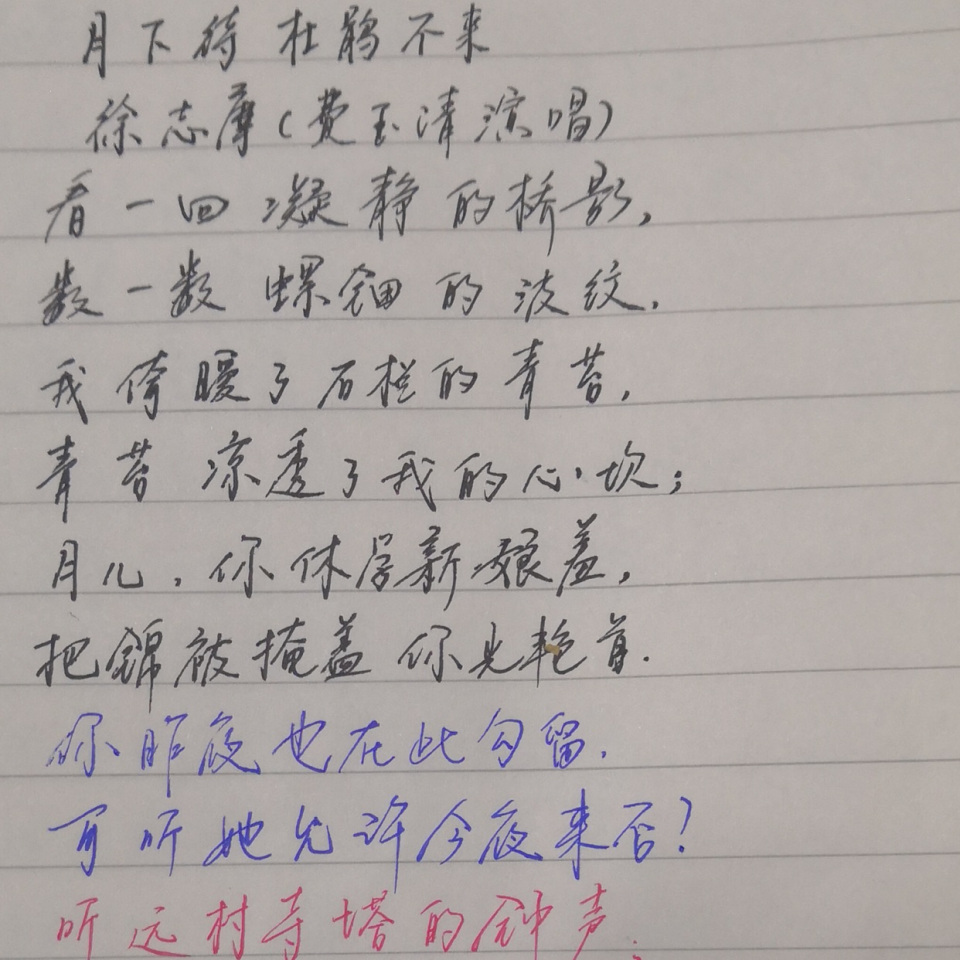 月下待杜鹃不来
徐志摩(费玉清演唱)
看一回凝静的桥影,
数一数螺钿的波纹.
我倚暖了石栏的青苔,
青苔凉透了我的心坎;
月儿,你休学新娘羞,
把锦被掩盖你光艳首.
你昨夜也在此勾留.
可听她允许今夜来否?
听远村寺塔的钟声,